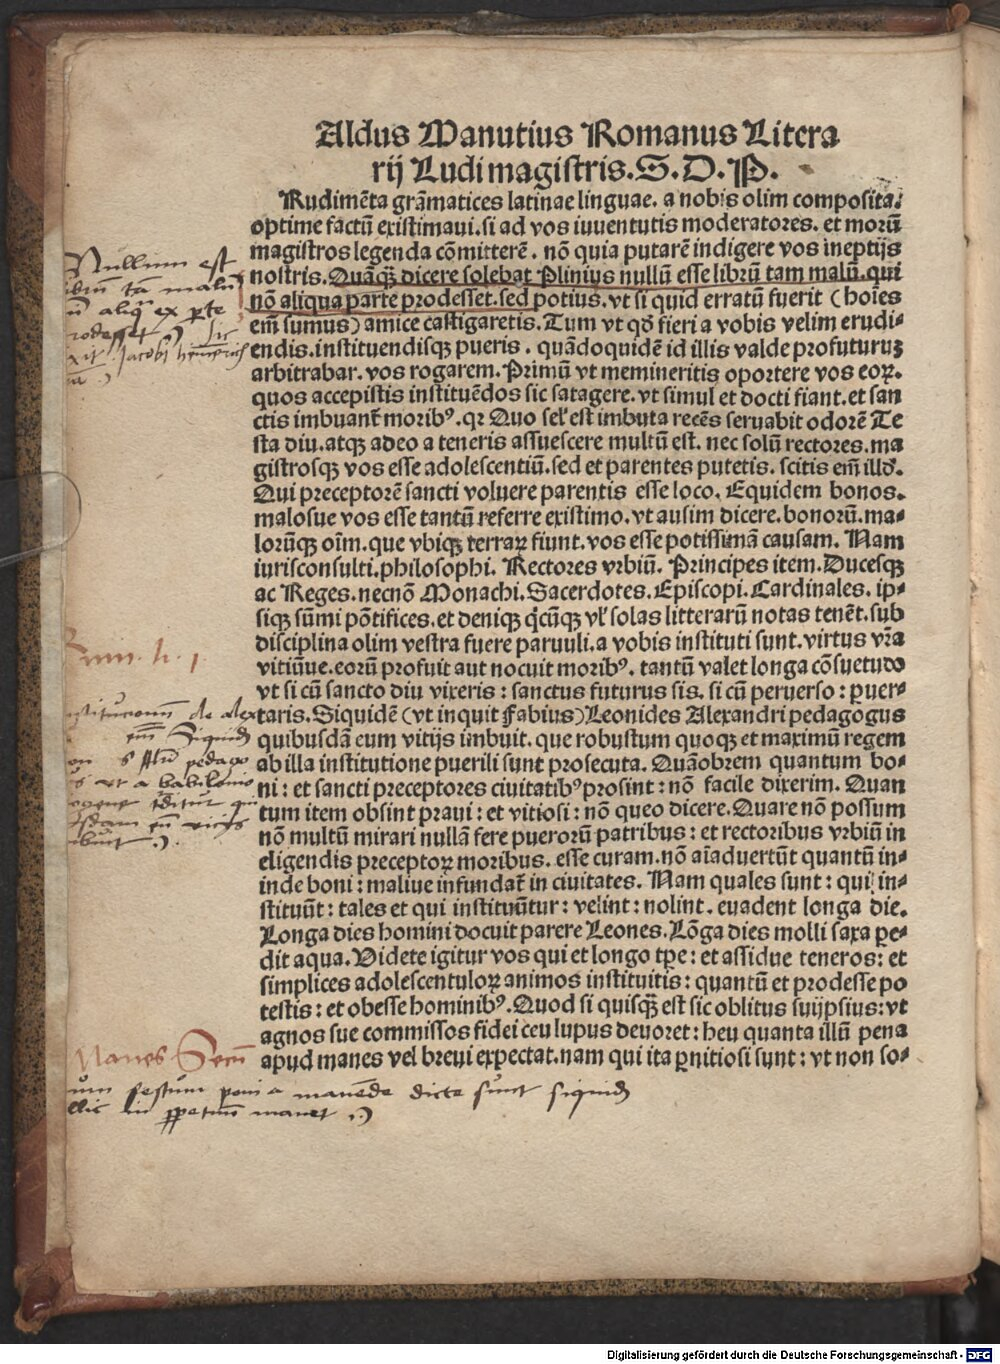 Aldus Manutius Romanus Litera
rij Ludimagistris.S.D.P.
Rudimẽta grãmatices latinae linguae. a nobis olim composita.
optime factũ existimaui.si ad vos iuuentutis moderatores. et morũ
magistros legenda cõmitterẽ. nõ quia putarẽ indigere vos ineptijs
nostris. Quãqꝫ dicere solebat Plinius nullũ esse librũ tam malũ.qui
nõ aliqua parte prodesset.sed potius.vt si quid erratũ fuerit (hoĩes
em̃ sumus) amice castigaretis. Tum vt qđ fieri a vobis velim erudi-
endis.instituendisqꝫ pueris. quãdoquidẽ id illis valde profuturuꝫ
arbitrabar. vos rogarem. Primũ vt memineritis oportere vos eoꝝ.
quos accepistis instituẽdos sic satagere. vt simul et docti fiant.et san
ctis imbuant᷑ moribꝰ. qꝛ Quo sel̕ est imbuta recẽs seruabit odorẽ Te
sta diu.atqꝫ adeo a teneris assuescere multũ est. nec solũ rectores.ma
gistrosqꝫ vos esse adolescentiũ.sed et parentes putetis. scitis em̃ illđ.
Qui preceptorẽ sancti voluere parentis esse loco. Equidem bonos.
malosue vos esse tantũ referre existimo.vt ausim dicere.bonorũ.ma-
lorũqꝫ oĩm.que vbiqꝫ terraꝝ fiunt.vos esse potissimã causam. Nam
iurisconsulti.philosophi. Rectores vrbiũ. Principes item.Ducesqꝫ
ac Reges.necnõ Monachi.Sacerdotes.Episcopi.Cardinales. ip-
siqꝫ sũmi põtifices.et deniqꝫ q̇cũqꝫ vl̕ solas litterarũ notas tenẽt.sub
disciplina olim vestra fuere paruuli.a vobis instituti sunt.virtus vr̃a
vitiũue.eorũ profuit aut nocuit moribꝰ. tantũ valet longa cõsuetudo
vt si cũ sancto diu vixeris : sanctus futurus sis. si cũ peruerso : ꝑuer-
taris.Siquidẽ (vt inquit Fabius) Leonides Alexandri pedagogus
quibusdã eum vitijs imbuit. que robustum quoqꝫ et maximũ regem
ab illa institutione puerili sunt prosecuta. Quãobrem quantum bo-
ni : et sancti preceptores ciuitatibꝰ prosint : nõ facile dixerim. Quan
tum item obsint praui : et vitiosi : nõ queo dicere. Quare nõ possum
nõ multũ mirari nullã fere puerorũ patribus : et rectoribus vrbiũ in
eligendis preceptoꝝ moribus. esse curam. nõ aĩaduertũt quantũ in-
inde boni : maliue infundat᷑ in ciuitates. Nam quales sunt : qui in-
stituũt : tales et qui instituũtur : velint : nolint. euadent longa die.
Longa dies homini docuit parere Leones. Lõga dies molli saxa ꝑe-
dit aqua. Videte igitur vos qui et longo tpe : et assidue teneros : et
simplices adolescentuloꝝ animos instituitis : quantũ et prodesse po
testis : et obesse hominibꝰ. Quod si quisqꝫ̃ est sic oblitus suijpsius: vt
agnos sue commissos fidei ceu lupus deuoret : heu quanta illũ pena
apud manes vel breui expectat. nam qui ita ꝑnitiosi sunt : vt non so-
Nullum est
ta malũ
aliq̃ ex ꝑte
sic
Jacobi
de alex
Siquid
pedago
vt a babilonio
Manes Secũ
festum manẽde dicte sunt siquid
in ꝑpetuũ manet